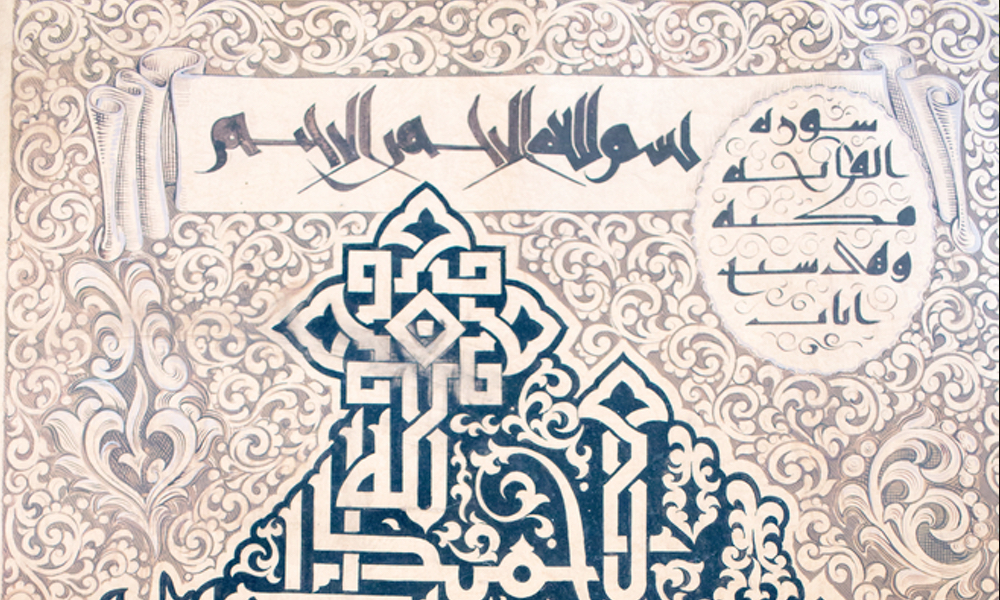 بسم الله الرحمن الرحيم
سوره
الفاتحه
مكيه
وهى سبع
ايات
الحمد لله